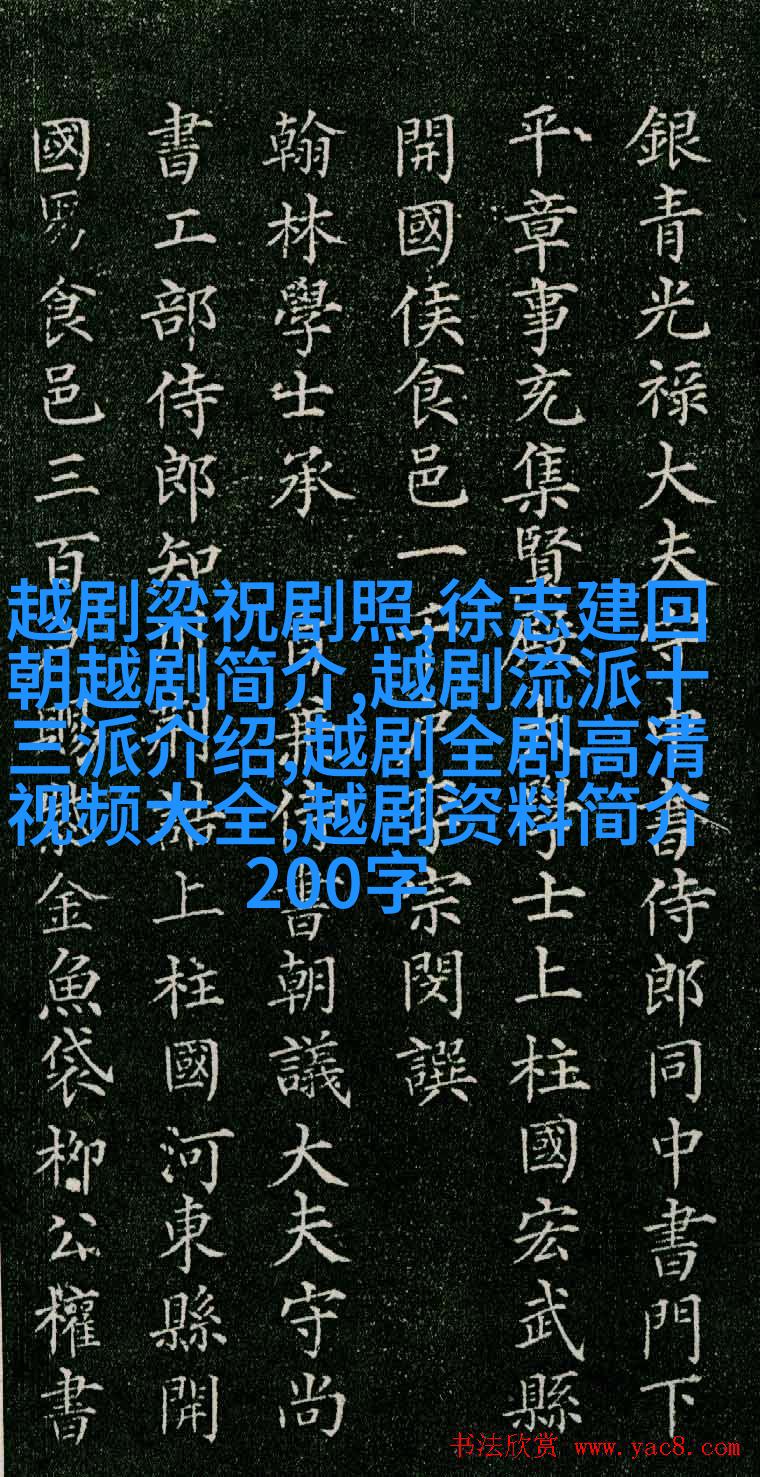 銀青光禄大夫守中書侍郎同中書門下
平章事充集賢殿大學士上柱國宏武縣
開國侯食邑一千户李宗閔撰
翰林學士承旨兼侍書朝議大夫守尚
書工部侍郎知制誥上柱國河東縣開
國男食邑三百户賜紫金魚袋柳公權書
越剧梁祝剧照,徐志建回
朝越剧简介,越剧流派十
三派介绍,越剧全剧高清
视频大全,越剧资料简介
200字
书法欣赏 www.yac8.com